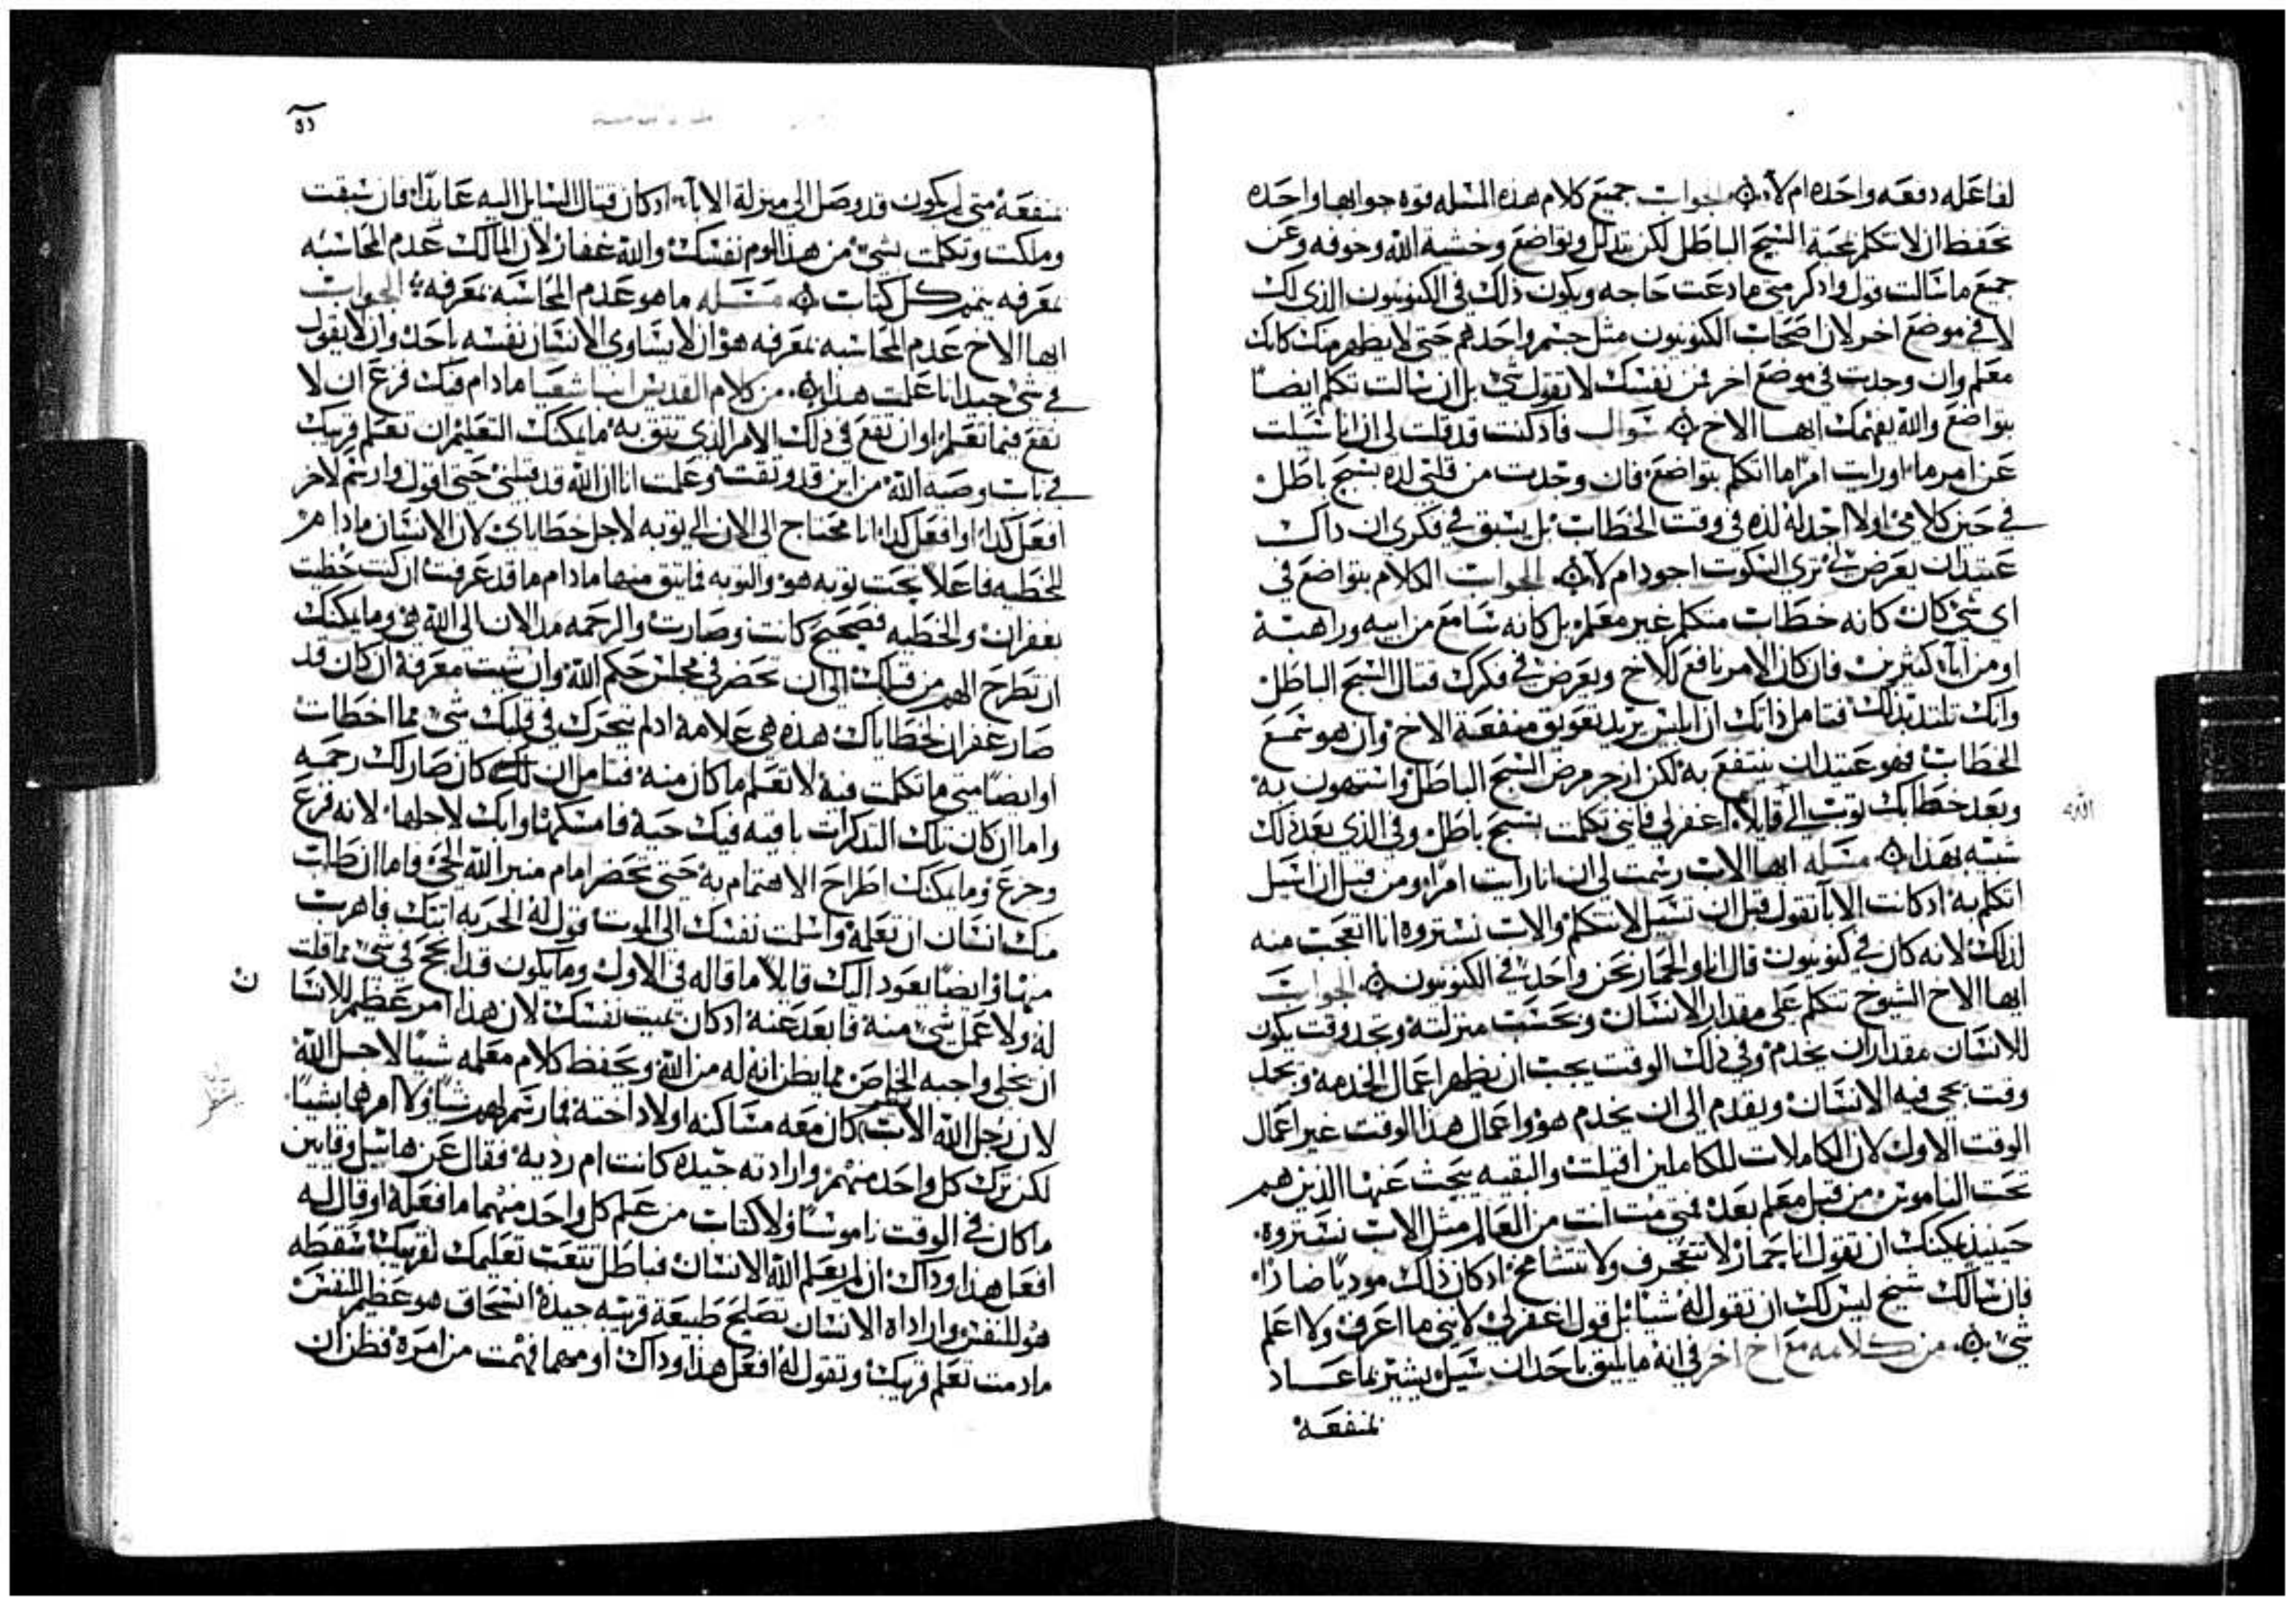 لفاعله دفعه واحده ام لا الجواب جميع كلام هذه المسله قوه جوابها واحده
تحفظ ان لا تتكلم بمحبة السبح الباطل لكن بتدلل وتواضع وخشية الله وخوفه وعن
جميع ما سالت قول واذكر متى ما دعت حاجه ويكون ذلك في الكنوبيون الذي لك
لا في موضع اخر لان اصحاب الكنوبيون مثل جسم واحد هم حتى لا يظهر منك كانك
معلم وان وجدت في موضع اخر فمن نفسك لا تقول شي بل ان سالت تكلم ايضاً
بتواضع والله يفهمك ايها الاخ سوال فادكنت قد قلت لي ان انا سيلت
عن امر ما اورايت امرًا ما اتكلم بتواضع فان وجدت من قلبي لده بسبح باطل
في حين كلامي اولا اجد له لده في وقت الخطاب بل يسبق في فكري ان داك
عتيد ان يعرض لي ترى السكوت اجود ام لا الجواب الكلام بتواضع في
اى شي كان كانه خطاب متكلم غير معلم بل كانه سامع من ابيه وراهبة
او من اباء كثيرين فان كان الامر نافع للاخ ويعرض في فكرك قتال السبح الباطل
وانك تلتد بذلك فتامل ذاتك ان ابليس يريد تعويق منفعة الاخ وان هو سمع
الخطاب فهو عتيد ان ينتفع به لكن ازجر مرض السبح الباطل واستهون به
وبعد خطابك توب الي قايلا اغفر لي فانني تكلمت بسبح باطل وفي الذي بعد ذلك
شبه بهذا مسله ايها الاب رسمت لي ان انا رايت امرًا ومن قبل ان اسيل
اتكلم به ادكانت الابا تقول قبل ان تسيل لا تتكلم والاب نستروه انا اتعجب منه
لذلك لانه كان في كنوبيون قال انا والحمار نحن واحد في الكنوبيون الجواب
ايها الاخ الشيوخ تتكلم على مقدار الانسان وبحسب منزلته وتجد وقت يكون
للانسان مقدار ان يخدم وفي ذلك الوقت يجب ان يظهر اعمال الخدمه وتجد
وقت يجي فيه الانسان ويقدم الى ان يخدم هو واعمال هذا الوقت غير اعمال
الوقت الاول لان الكاملات للكاملين اقبلت والبقيه يبحث عنها الذين هم
تحت الناموس من قبل معلم بعد فمتى مت انت من العالم مثل الاب نستروه
حينيذ يمكنك ان تقول انا حمار لا تنحرف ولا تتشامخ ادكان ذلك موديًا ضارًا
فان سالك شيخ ليس لك ان تقول له شيا بل قول اغفر لي لانني ما اعرف ولا اعلم
شي من كلامه مع اخ اخر في انه ما يليق باحد ان سيل يشير بما عاد
لمنفعة
الله
منفعة متى لم يكون قد وصل الى منزلة الابا ادكان قتال السايل اليه عايدًا فان سبقت
وملكت وتكلمت بشي من هذا لوم نفسك والله غفار لان المالك عدم المحاسبه
بمعرفه يتمم كل كتاب مسله ما هو عدم المحاسبه بمعرفه الجواب
ايها الاخ عدم المحاسبه بمعرفه هو ان لا يساوى الانسان نفسه باحد وان لا يقول
في شي جيد انا عملت هذا من كلام القديس انبا شعيا ما دام فيك فزع ان لا
تقع فيما تعلم او ان تقع في ذلك الامر الذي تتق به ما يمكنك التعليم ان تعلم قريبك
في باب وصية الله من اين قد وثقت وعلمت انا ان الله قد قبلني حتى اقول وارسم لاخر
افعل كدا او افعل كدا انا محتاج الى الان الي توبه لاجل خطاياي لان الانسان ما دام
للخطيه فاعلا تحت توبه هو والتوبه فما يتق منها ما دام ما قد عرفت ان كنت حظيت
بغفران والخطيه فصحيح كانت وصارت والرحمه مد الان الى الله هي وما يمكنك
ان تطرح الهم من قبلك الى ان تحضر في مجلس حكم الله وان شيت معرفة ان كان قد
صار غفران لخطاياك هذه هي علامة ادا لم يتحرك في قلبك شي مما اخطات
او ايضًا متى ما تكلمت فيه لا تعلم ما كان منه فتامل ان كان صار لك رحمه
واما ان كان تلك التدكرات باقيه فيك حية فامسكها وابك لاجلها لانه فزع
وجزع وما يمكنك اطراح الاهتمام به حتى تحضر امام منبر الله الحي فاما ان طلب
منك انسان ان تعلمه واسلمت نفسك الى الموت قول له الحربه اتتك فاهرب
منها وايضًا يعود اليك قايلا ما قاله في الاول وما يكون قد انجح في شي مما قلت
له ولا عمل شي منه فابعد عنه ادكان يميت نفسك لان هذا امر عظيم للانسا
ن
ان يخلي واجبه الخاص مما يظن انه له من الله ويحفظ كلام معلمه شيا لاجل الله
لان رجل الله الاب كان معه مساكنه اولاد اخته فما رسم لهم شيا ولا امرهما بشيا
لكن ترك كل واحد منهم وارادته جيده كانت ام رديه فقال عن هابيل وقايين
ما كان في الوقت ناموسًا ولا كتاب من علم كل واحد منهما ما فعله او قال له
افعل هذا وداك ان لم يعلم الله الانسان فباطل تتعب تعلمك لقريبك سقطه
هو للنفس وارادة الانسان تصليح طبيعة قريبه جيدة انسحاق هو عظيم للنفس
ما دمت تعلم قريبك وتقول له افعل هذا وداك او مهما فهمت من امره فظن ان